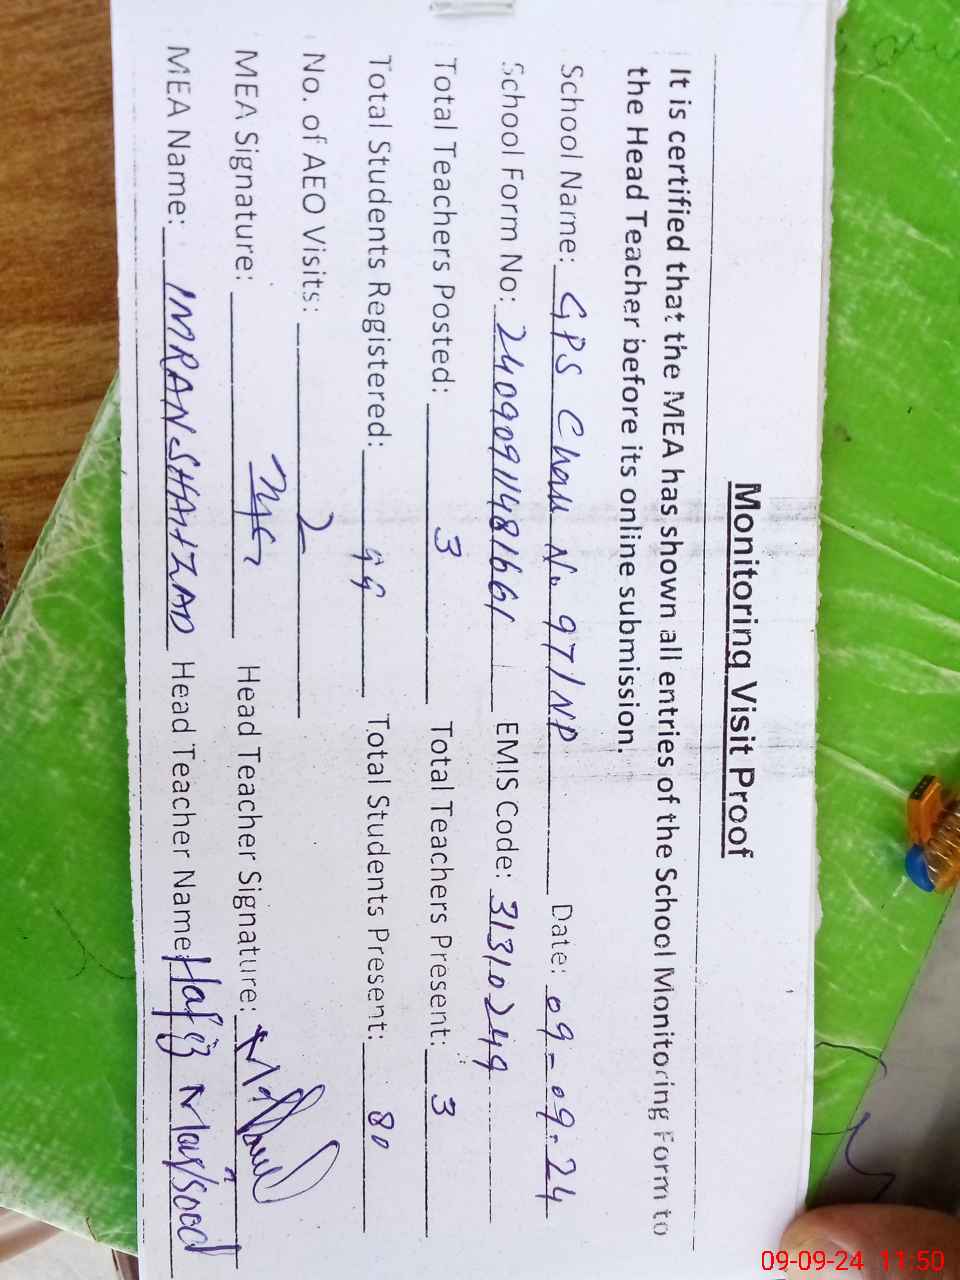 Monitoring Visit Proof
It is certified that the MEA has shown all entries of the School Monitoring Form to
the Head Teacher before its online submission.
School Name: GPS Chak No 97/NP Date: 09-09-24
School Form No: 24090911481661 EMIS Code: 31310249
Total Teachers Posted: 3 Total Teachers Present: 3
Total Students Registered: 99 Total Students Present: 80
No. of AEO Visits: 2
MEA Signature: Head Teacher Signature:
MEA Name: IMRAN SHAHZAD Head Teacher Name: Hafiz Maqsood
09-09-24 11:50